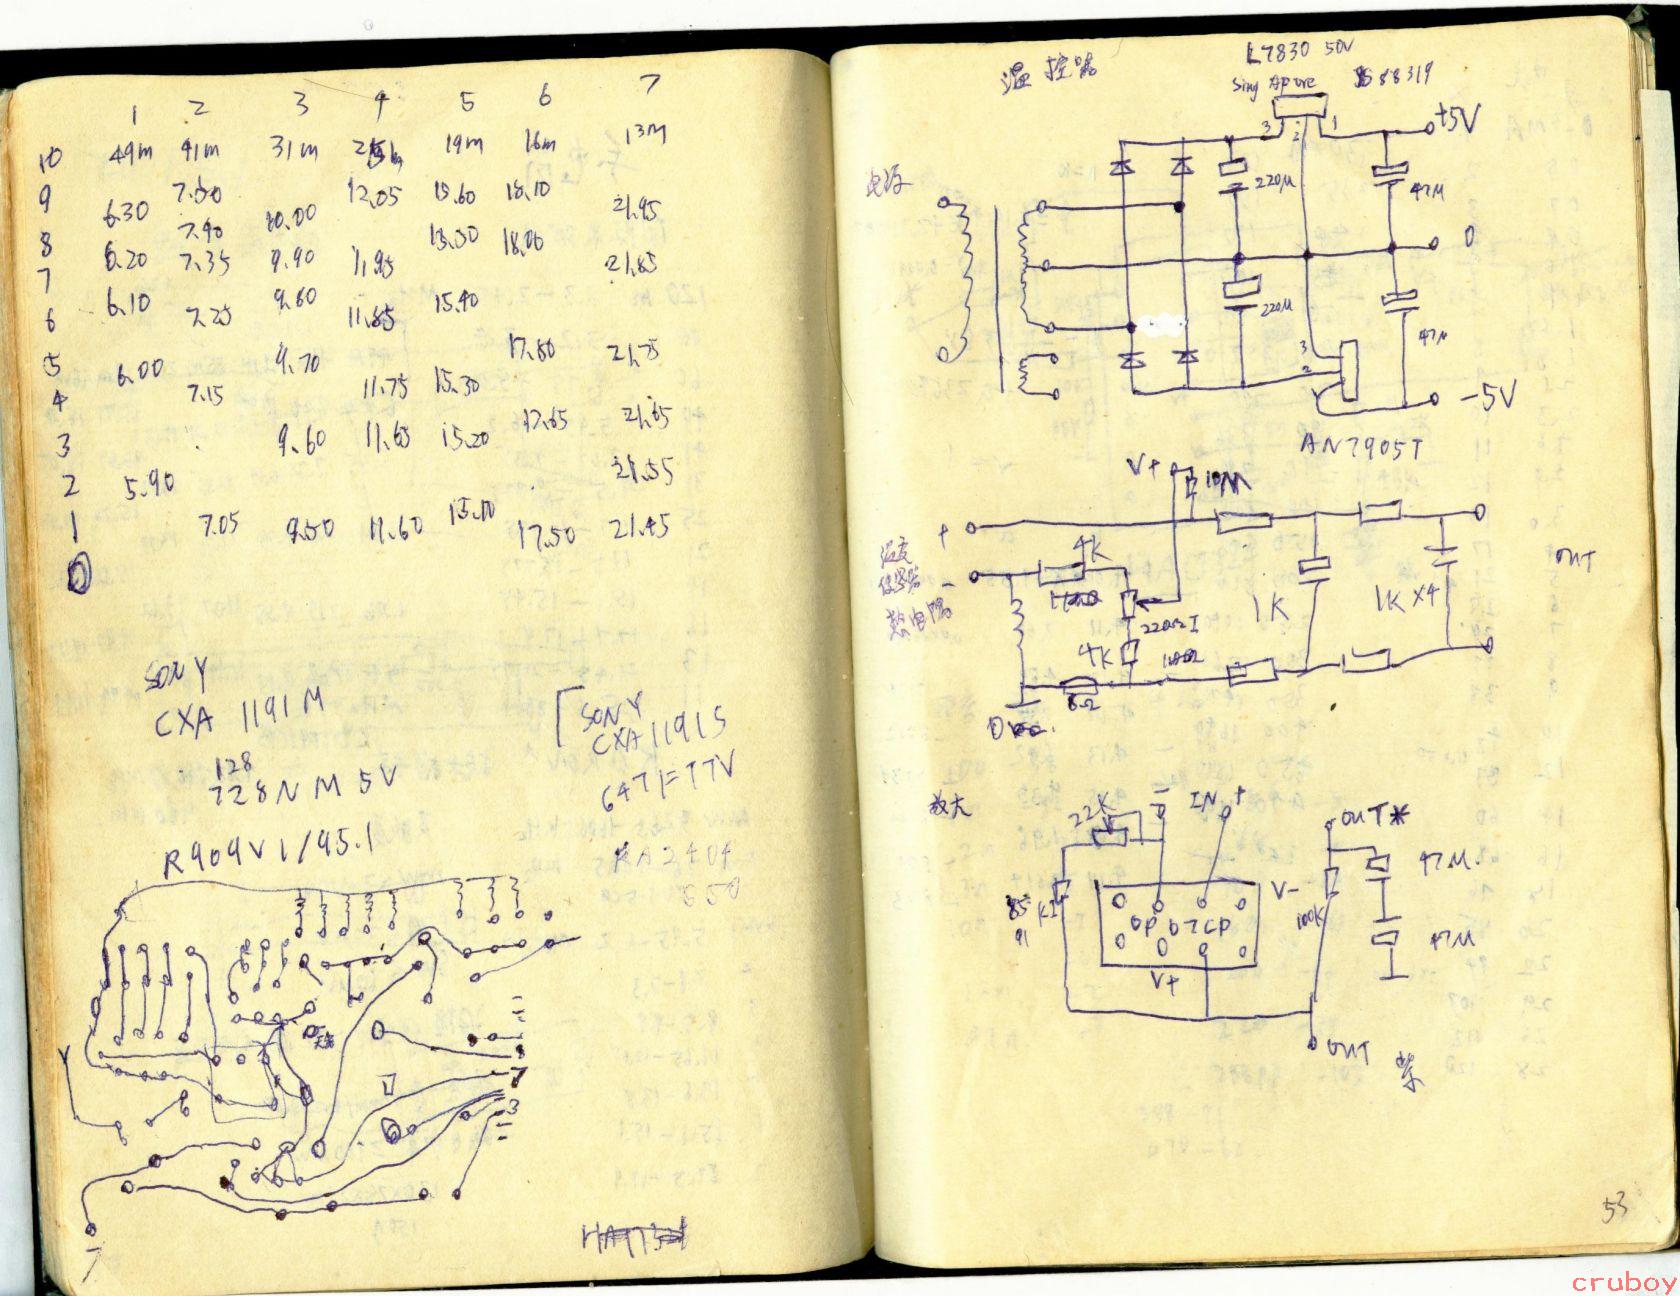 1 2 3 4 5 6 7
10 49m 41m 31m 25m 19m 16m 13m
9 6.30 7.50 10.00 12.05 15.60 18.10 21.95
8 6.20 7.40 9.90 15.50 18.00
7 7.35 11.95 21.85
6 6.10 7.25 9.80 11.85 15.40
5 6.00 9.70 17.80 21.75
4 7.15 11.75 15.30
3 9.60 11.65 15.20 17.65 21.65
2 5.90 21.55
1 7.05 9.50 11.60 15.10 17.50 21.45
0
SONY
CXA 1191M
128
728NM 5V
[SONY
CXA1191S
647F=TTV
R909V1/95.1
KA2404
7
3
温控器
L7830 50V
Sing Apore S88319
电源
3 2 1
+5V
220μ
47μ
0
220μ
47μ
3
2
-5V
AN7905T
V+
10M
+
温度
传感器
热电偶
-
4K
220Ω
4K
8Ω
1K
1K×4
OUT
放大
22K
-
IN +
OUT*
47μ
V-
100K
OP07CP
47μ
V+
OUT
53
cruboy